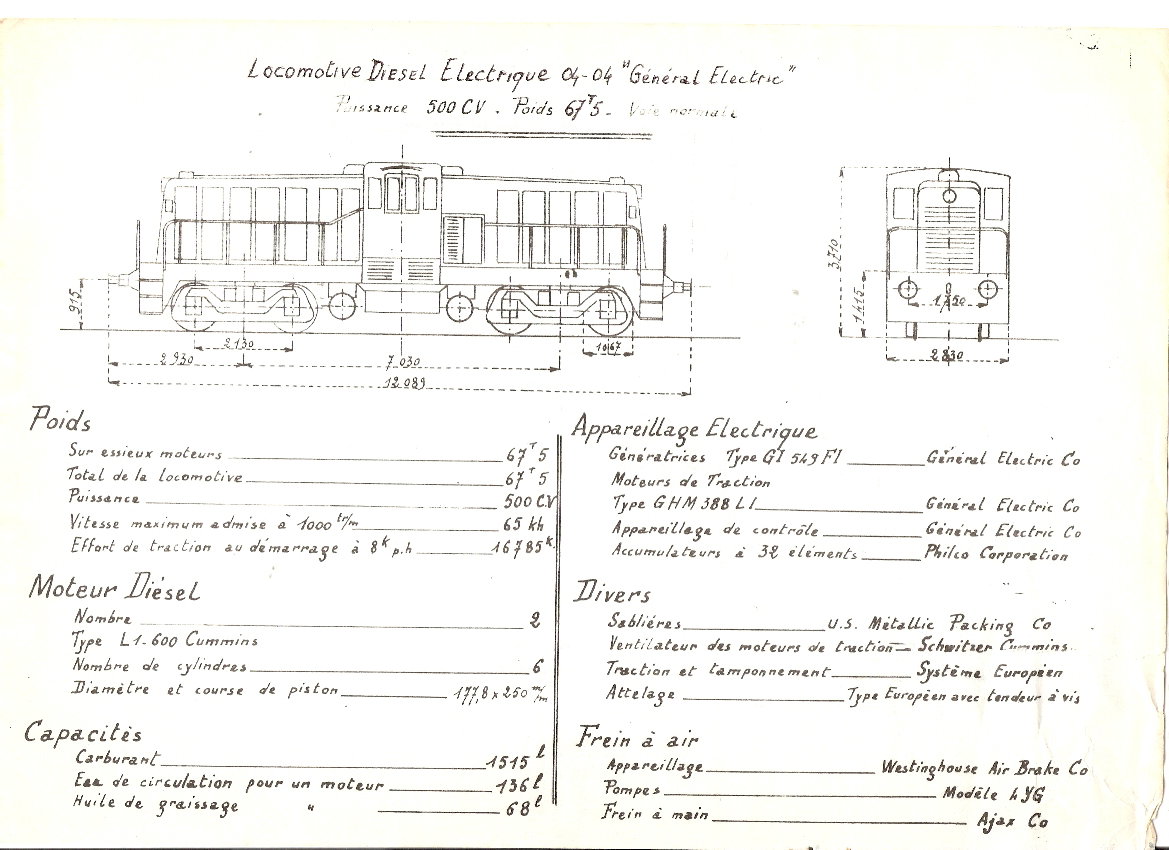 Locomotive Diesel Electrique 04-04 "Général Electric"
Puissance 500 CV. Poids 67T5 - Voie normale
915
2130
2 930
7 030
12 089
1067
3,710
1,415
1,750
2 830
Poids
Sur essieux moteurs 67T5
Total de la locomotive 67T5
Puissance 500 CV
Vitesse maximum admise à 1000 tr/m 65 kh
Effort de traction au démarrage à 8k p.h 16785k.
Moteur Diésel
Nombre 2
Type L1-600 Cummins
Nombre de cylindres 6
Diamètre et course de piston 177,8 x 250 m/m
Capacités
Carburant 1515 l
Eau de circulation pour un moteur 136 l
Huile de graissage " 68 l
Appareillage Electrique
Génératrices Type GI 549 FI Général Electric Co
Moteurs de Traction
Type GHM 388 LI Général Electric Co
Appareillage de contrôle Général Electric Co
Accumulateurs à 32 éléments Philco Corporation
Divers
Sablières U.S. Métallic Packing Co
Ventilateur des moteurs de traction Schwitzer Cummins
Traction et tamponnement Système Européen
Attelage Type Européen avec tendeur à vis
Frein à air
Appareillage Westinghouse Air Brake Co
Pompes Modèle 4YG
Frein à main Ajax Co